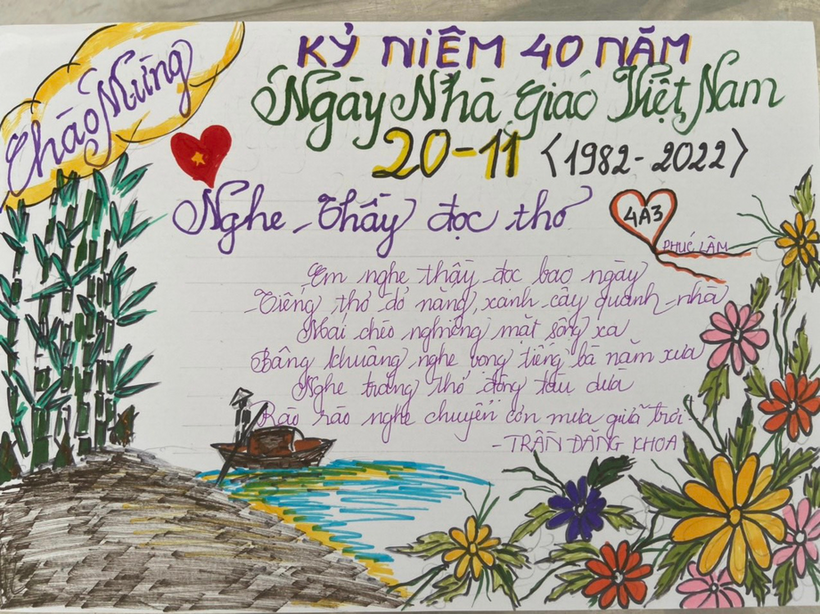 Chào Mừng
KỶ NIỆM 40 NĂM
Ngày Nhà Giáo Việt Nam
20-11 <1982-2022>
Nghe Thầy đọc thơ
4A3
PHÚC LÂM
Em nghe thầy đọc bao ngày
Tiếng thơ đỏ nắng, xanh cây quanh nhà
Mái chèo nghiêng mặt sông xa
Bâng khuâng nghe vọng tiếng bà năm xưa
Nghe trăng thở động tàu dừa
Rào rào nghe chuyển cơn mưa giữa trời
-TRẦN ĐĂNG KHOA